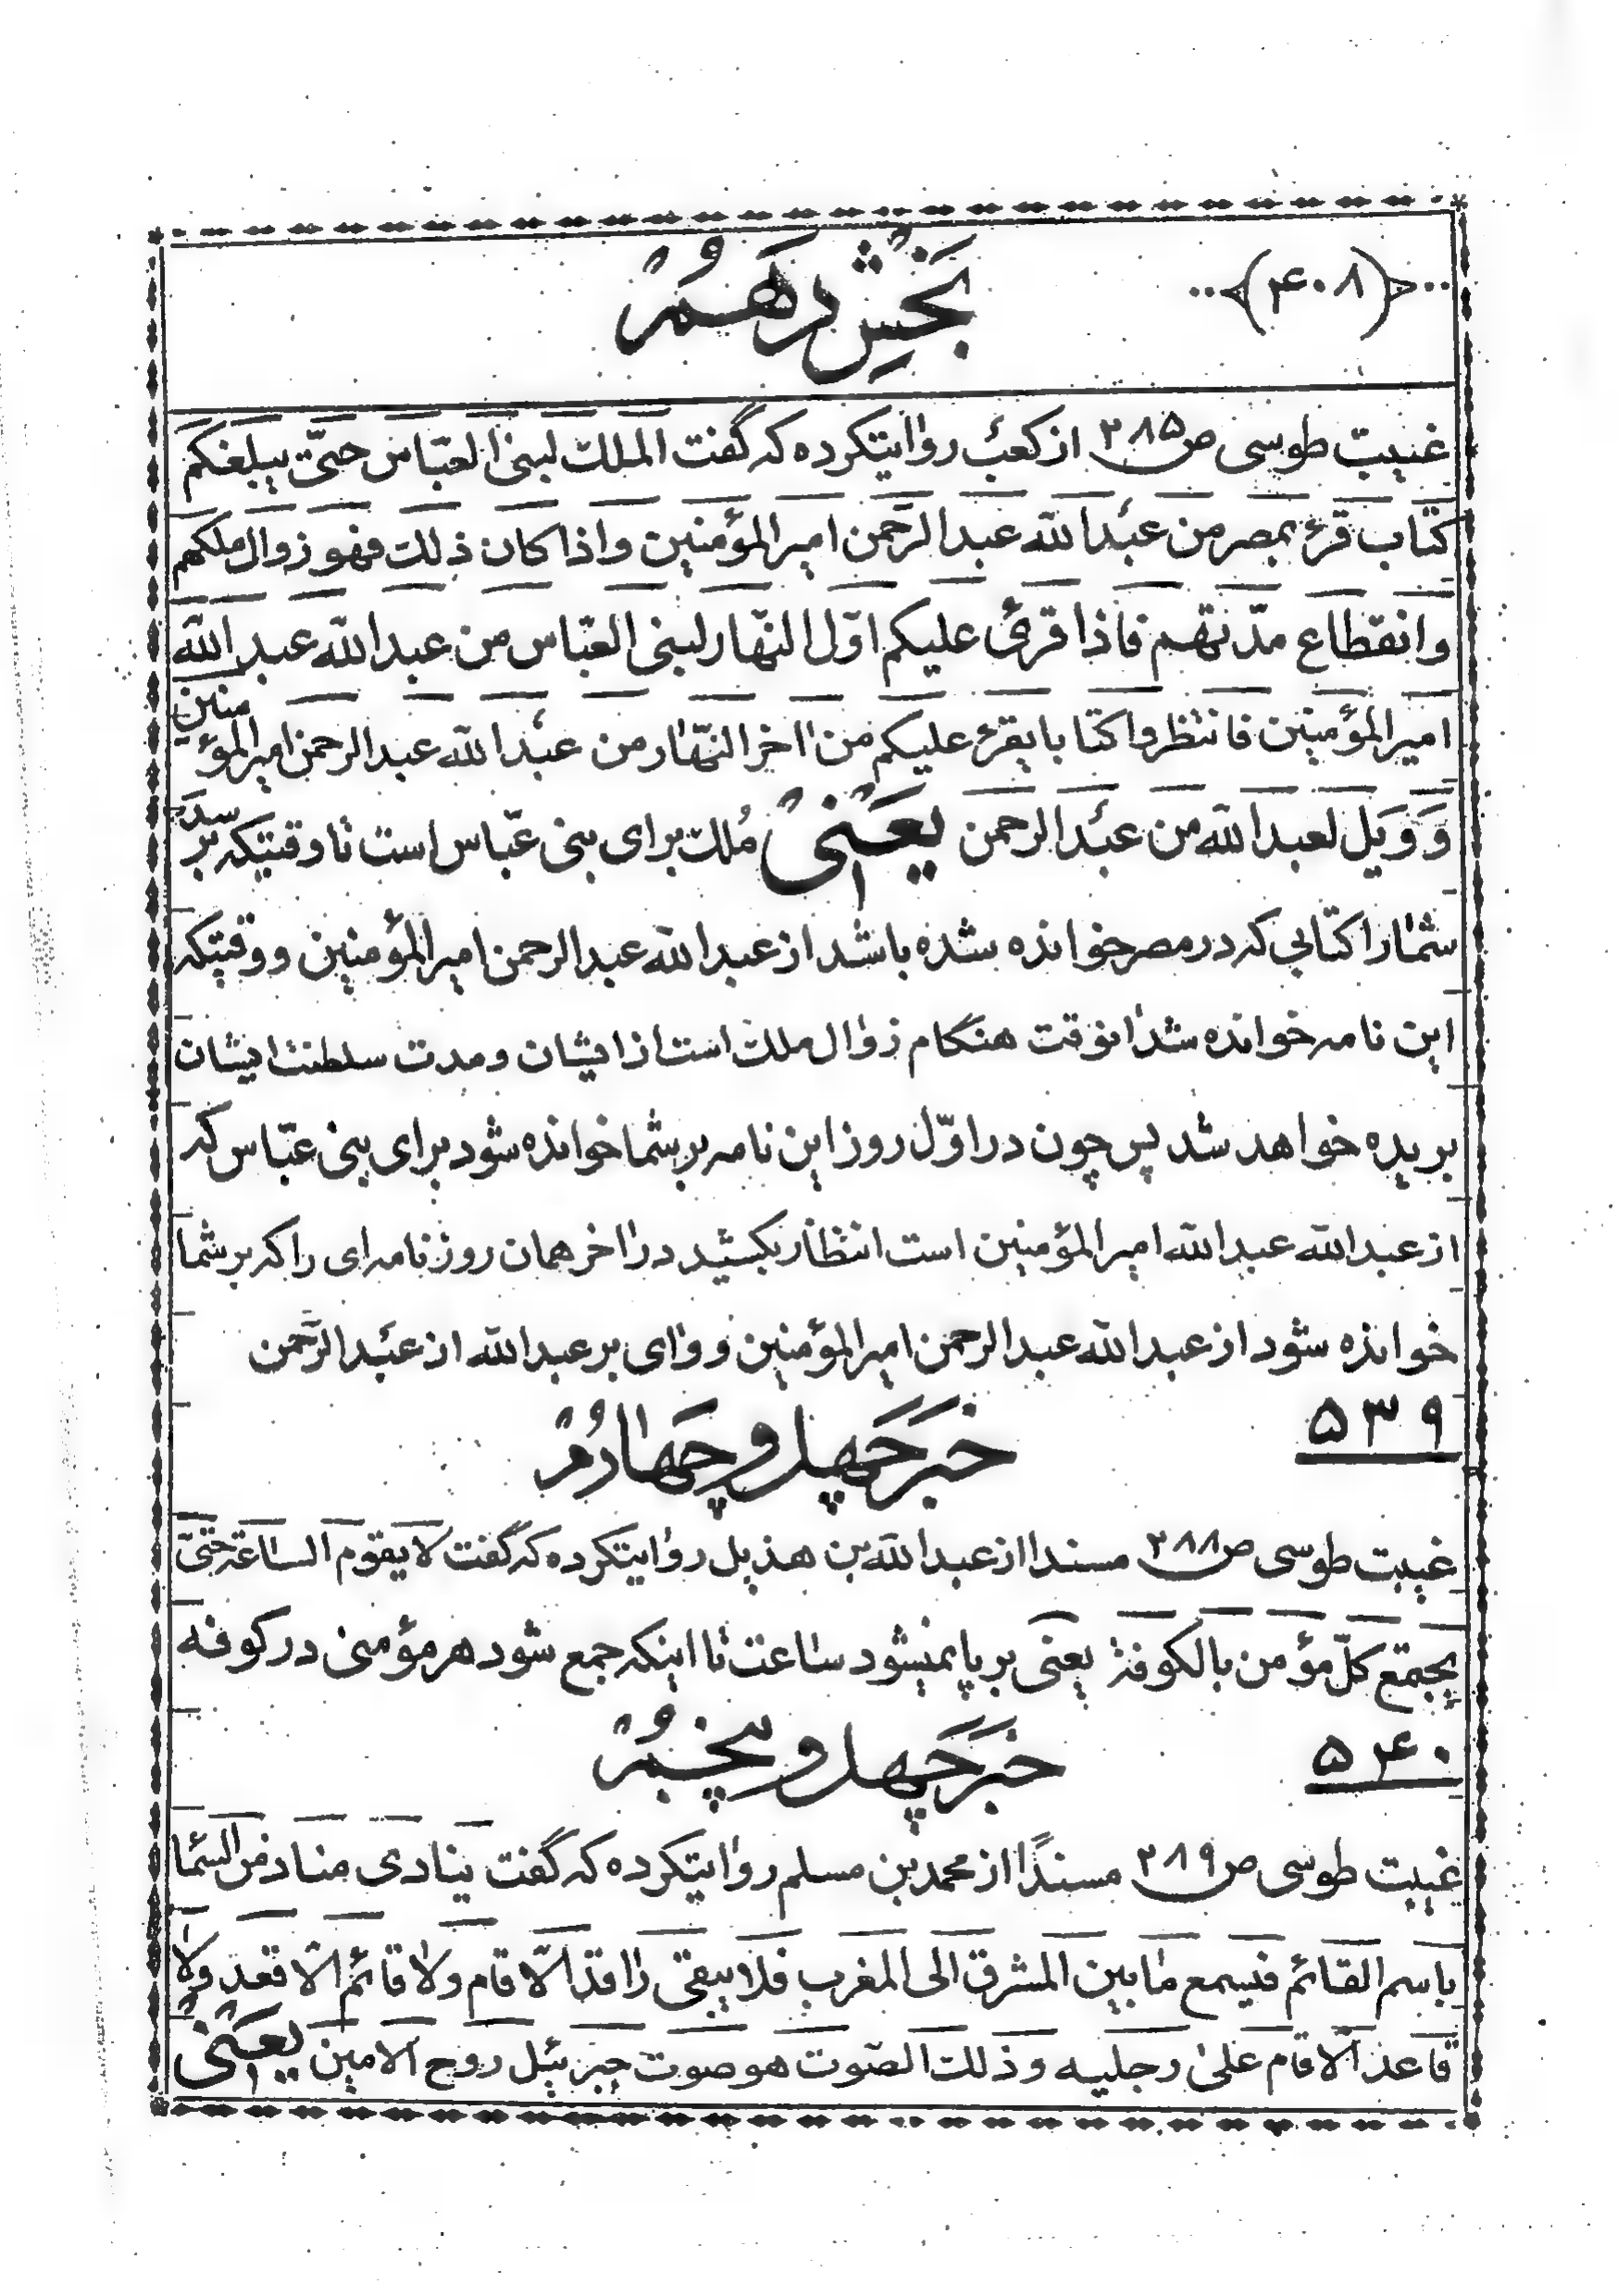 (۴۰۸)
بخش دهم
غیبت طوسی ص۲۸۵ از کعب روایتکرده که گفت الملك لبنی العبّاس حتّی یبلغکم
کتاب قرء بمصر من عبدالله عبدالرّحمن امیرالمؤمنین و اذا کان ذلك فهو زوال ملکهم
وانقطاع مدّتهم فاذا قرئ علیکم اوّل النّهار لبنی العبّاس من عبدالله عبدالله
امیرالمؤمنین فانتظروا کتابا یقرء علیکم من اخر النّهار من عبدالله عبدالرحمن امیرالمؤمنین
وَوَیل لعبدالله من عبدالرحمن یعنی مُلك برای بنی عبّاس است تا وقتیکه برسد
شما را کتابی که در مصر خوانده شده باشد از عبدالله عبدالرحمن امیرالمؤمنین و وقتیکه
این نامه خوانده شد انوقت هنگام زوال ملك است از ایشان و مدت سلطنت ایشان
بریده خواهد شد پس چون در اوّل روز این نامه بر شما خوانده شود برای بنی عبّاس که
از عبدالله عبدالله امیرالمؤمنین است انتظار بکشید در اخر همان روز نامه ای را که بر شما
خوانده شود از عبدالله عبدالرحمن امیرالمؤمنین و وای بر عبدالله از عبدالرّحمن
۵۳۹
خبر چهل و چهارم
غیبت طوسی ص۲۸۸ مسندا از عبدالله بن هذیل روایتکرده که گفت لا یقوم الساعة حتّیٰ
یجمتع کلّ مؤمن بالکوفة یعنی بر پا نمیشود ساعت تا اینکه جمع شود هر مؤمنی در کوفه
۵۴۰
خبر چهل و پنجم
غیبت طوسی ص۲۸۹ مسندًا از محمد بن مسلم روایتکرده که گفت ینادی مناد من السّما
باسم القائم فیسمع ما بین المشرق الی المغرب فلا یبقی راقد الّا قام ولا قائم الّا قعد ولا
قاعد الّا قام علیٰ رجلیه و ذلك الصّوت هو صوت جبرئیل روح الامین یعنی